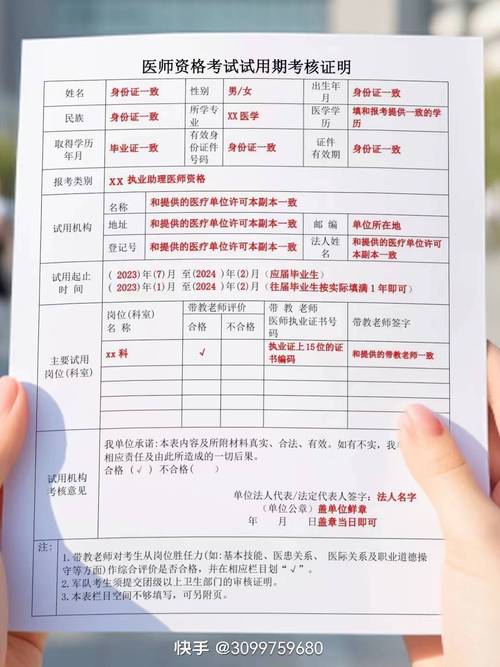 医师资格考试试用期考核证明
姓名 身份证一致 性别 男/女 出生年月 身份证一致
民族 身份证一致 所学专业 XX医学 医学学历 填和报考提供一致的学历
取得学历年月 毕业证一致 有效身份证件号码 身份证一致 证件有效期 身份证一致
报考类别 XX 执业助理医师资格
试用机构 名称 和提供的医疗单位许可本副本一致
地址 和提供的医疗单位许可本副本一致 邮 编 单位所在地
登记号 和提供的医疗单位许可本副本一致 法人姓名 和提供的医疗单位许可本副本一致
试用起止时 间 ( 2023)年(7)月 至(2024 )年(2)月 (应届毕业生)
( 2023)年(1)月 至(2024 )年(2)月 (往届毕业生按实际填满 1 年即可)
主要试用岗位(科室) 岗位(科室)名 称 带教老师评价 带 教 老师医师执业证书号码 带教老师签字
合格 不合格
xx 科 √ 执业证上15位的证书编码 和提供的带教老师一致
试用机构考核意见
我单位承诺:本表内容及所附材料真实、合法、有效。如有不实，我单
相应责任及由此所造成的一切后果。
合格（√ ）不合格( )
单位法人代表/法定代表人签字：法人名字
(单位公章) 盖单位鲜章
年 月 日 盖章当日即可
注:
1.带教老师对考生从岗位胜任力(如:基本技能、医患关系、 医际关系及职业道德操
守等方面)作综合评价是否合格，并在相应栏目划“√”。
2.军队考生须提交团级以上卫生部门的审核证明。
3.本表栏目空间不够填写，可另附页。
快手 @3099759680